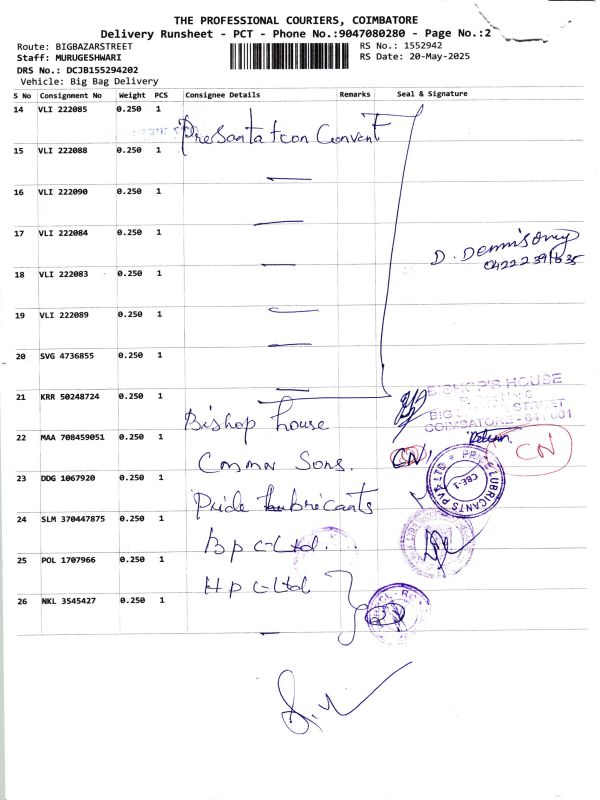 THE PROFESSIONAL COURIERS, COIMBATORE
Delivery Runsheet - PCT - Phone No.:9047080280 - Page No.:2
Route: BIGBAZARSTREET
RS No.: 1552942
Staff: MURUGESHWARI
RS Date: 20-May-2025
DRS No.: DCJB155294202
Vehicle: Big Bag Delivery
S No Consignment No Weight PCS Consignee Details Remarks Seal & Signature
14 VLI 222085 0.250 1 Presantation Convent
15 VLI 222088 0.250 1
16 VLI 222090 0.250 1
17 VLI 222084 0.250 1
D. Dennisony
18 VLI 222083 0.250 1
19 VLI 222089 0.250 1
20 SVG 4736855 0.250 1
21 KRR 50248724 0.250 1 Bishop house
BISHOP'S HOUSE
BIG STREET
COIMBATORE - 641 001
22 MAA 708459051 0.250 1 Cmmn Sons. CN
Return CN
23 DDG 1067920 0.250 1 Pride Lubricants
PRIDE LUBRICANTS PVT LTD
CBE-1
24 SLM 370447875 0.250 1 B P C Ltd.
25 POL 1707966 0.250 1 H P C Ltd
26 NKL 3545427 0.250 1